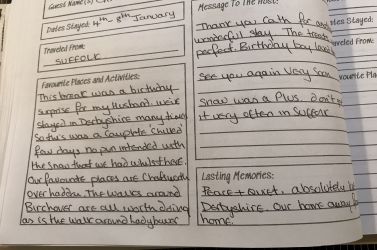 Guest Name(s)
Dates Stayed: 4th, 8th January
Traveled From:
SUFFOLK
Favourite Places and Activities:
This break was a birthday
surprise for my husband. we've
stayed in Derbyshire many times
So this was a complete chilled
few days no pun intended with
the snow that we had whilst here.
Our favourite places are Chatsworth
over haddon. The walks around
Birchover are all worth doing
as is the walk around Ladybower
Message To The Host:
Thank you Cath for
wonderful stay. The treats
perfect. Birthday boy loved
See you again very soon
Snow was a plus. don't get
it very often in Suffolk
Lasting Memories:
Peace + Quiet. absolutely
Derbyshire. Our home away
home.
Stayed:
Traveled From:
Favourite Pla